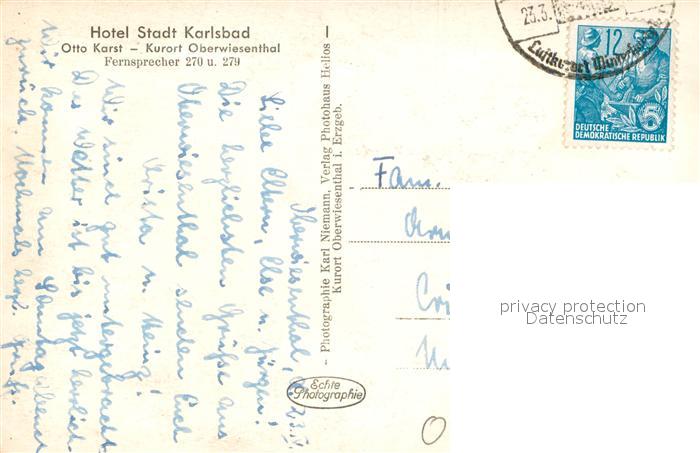 Hotel Stadt Karlsbad
Otto Karst – Kurort Oberwiesenthal
Fernsprecher 270 u. 279
Oberwiesenthal, d. 23.
Liebe Eltern, Else u. Jürgen!
Die herzlichsten Grüße aus
Oberwiesenthal senden Euch
Krista u. Heinz!
Wir sind gut untergebracht
Das Wetter ist bis jetzt herrlich
Wir kommen am Sonntag abend
zurück. Nochmals herzl. Grüße.
- Photographie Karl Niemann, Verlag Photohaus Helios
Kurort Oberwiesenthal i. Erzgeb.
I
Echte
Photographie
23.3.
Luftkurort
12
5
DEUTSCHE
DEMOKRATISCHE REPUBLIK
Fam.
privacy protection
Datenschutz